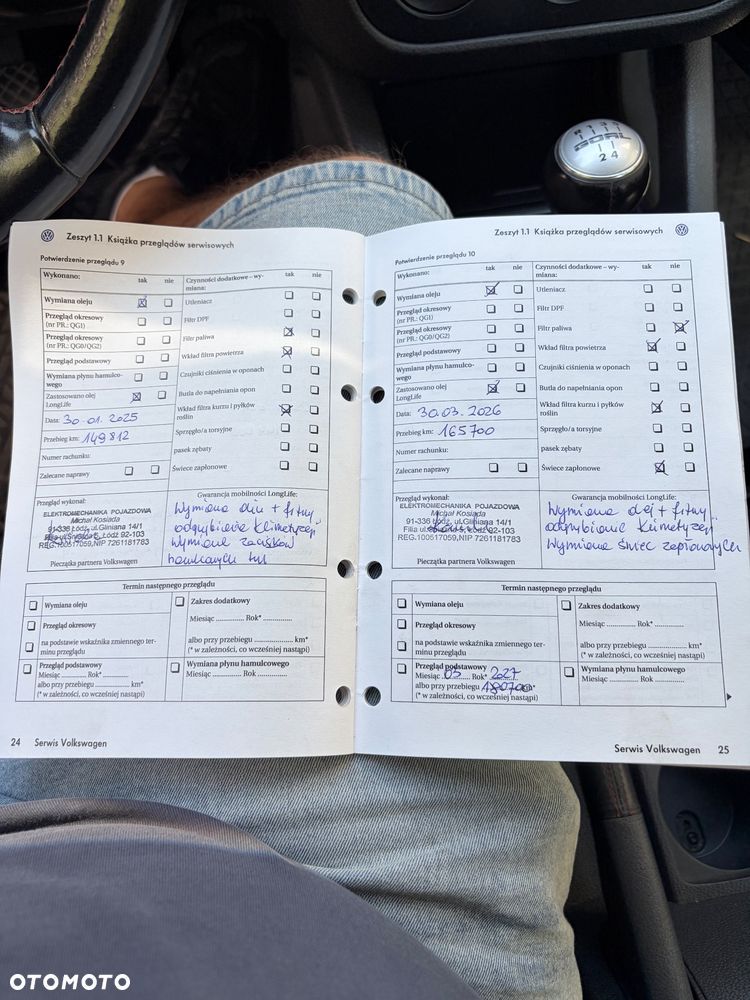 R 1 3
GOAL
2 4
Zeszyt 1.1 Książka przeglądów serwisowych
Potwierdzenie przeglądu 9
Wykonano: tak nie
Wymiana oleju
Przegląd okresowy
(nr PR.: QG1)
Przegląd okresowy
(nr PR.: QG0/QG2)
Przegląd podstawowy
Wymiana płynu hamulco-
wego
Zastosowano olej
LongLife
Data: 30.01.2025
Przebieg km: 149812
Numer rachunku:
Zalecane naprawy
Czynności dodatkowe – wy-
miana: tak nie
Utleniacz
Filtr DPF
Filtr paliwa
Wkład filtra powietrza
Czujniki ciśnienia w oponach
Butla do napełniania opon
Wkład filtra kurzu i pyłków
roślin
Sprzęgło/a torsyjne
pasek zębaty
Świece zapłonowe
Przegląd wykonał:
ELEKTROMECHANIKA POJAZDOWA
Michał Kosiada
91-336 Łódź, ul.Gliniana 14/1
Łódź 92-103
REG.100617059,NIP 7261181783
Pieczątka partnera Volkswagen
Gwarancja mobilności LongLife:
Wymiana oleju + filtry
odgrzybianie klimatyzacji
wymiana zacisków
hamulcowych tył
Termin następnego przeglądu
Wymiana oleju
Przegląd okresowy
na podstawie wskaźnika zmiennego ter-
minu przeglądu
Przegląd podstawowy
Miesiąc ............ Rok* ............
albo przy przebiegu ............ km*
(* w zależności, co wcześniej nastąpi)
Zakres dodatkowy
Miesiąc ............ Rok* ............
albo przy przebiegu ............ km*
(* w zależności, co wcześniej nastąpi)
Wymiana płynu hamulcowego
Miesiąc ............ Rok ............
24 Serwis Volkswagen
Zeszyt 1.1 Książka przeglądów serwisowych
Potwierdzenie przeglądu 10
Wykonano: tak nie
Wymiana oleju
Przegląd okresowy
(nr PR.: QG1)
Przegląd okresowy
(nr PR.: QG0/QG2)
Przegląd podstawowy
Wymiana płynu hamulco-
wego
Zastosowano olej
LongLife
Data: 30.03.2026
Przebieg km: 165700
Numer rachunku:
Zalecane naprawy
Czynności dodatkowe – wy-
miana: tak nie
Utleniacz
Filtr DPF
Filtr paliwa
Wkład filtra powietrza
Czujniki ciśnienia w oponach
Butla do napełniania opon
Wkład filtra kurzu i pyłków
roślin
Sprzęgło/a torsyjne
pasek zębaty
Świece zapłonowe
Przegląd wykonał:
ELEKTROMECHANIKA POJAZDOWA
Michał Kosiada
91-336 Łódź, ul.Gliniana 14/1
Filia ul. Łódź 92-103
REG.100617059,NIP 7261181783
Pieczątka partnera Volkswagen
Gwarancja mobilności LongLife:
Wymiana olej + filtry
odgrzybianie klimatyzacji
Wymiana świec zapłonowych
Termin następnego przeglądu
Wymiana oleju
Przegląd okresowy
na podstawie wskaźnika zmiennego ter-
minu przeglądu
Przegląd podstawowy
Miesiąc 03 Rok* 227
albo przy przebiegu 180700 km*
(* w zależności, co wcześniej nastąpi)
Zakres dodatkowy
Miesiąc ............ Rok* ............
albo przy przebiegu ............ km*
(* w zależności, co wcześniej nastąpi)
Wymiana płynu hamulcowego
Miesiąc ............ Rok ............
Serwis Volkswagen 25
OTOMOTO